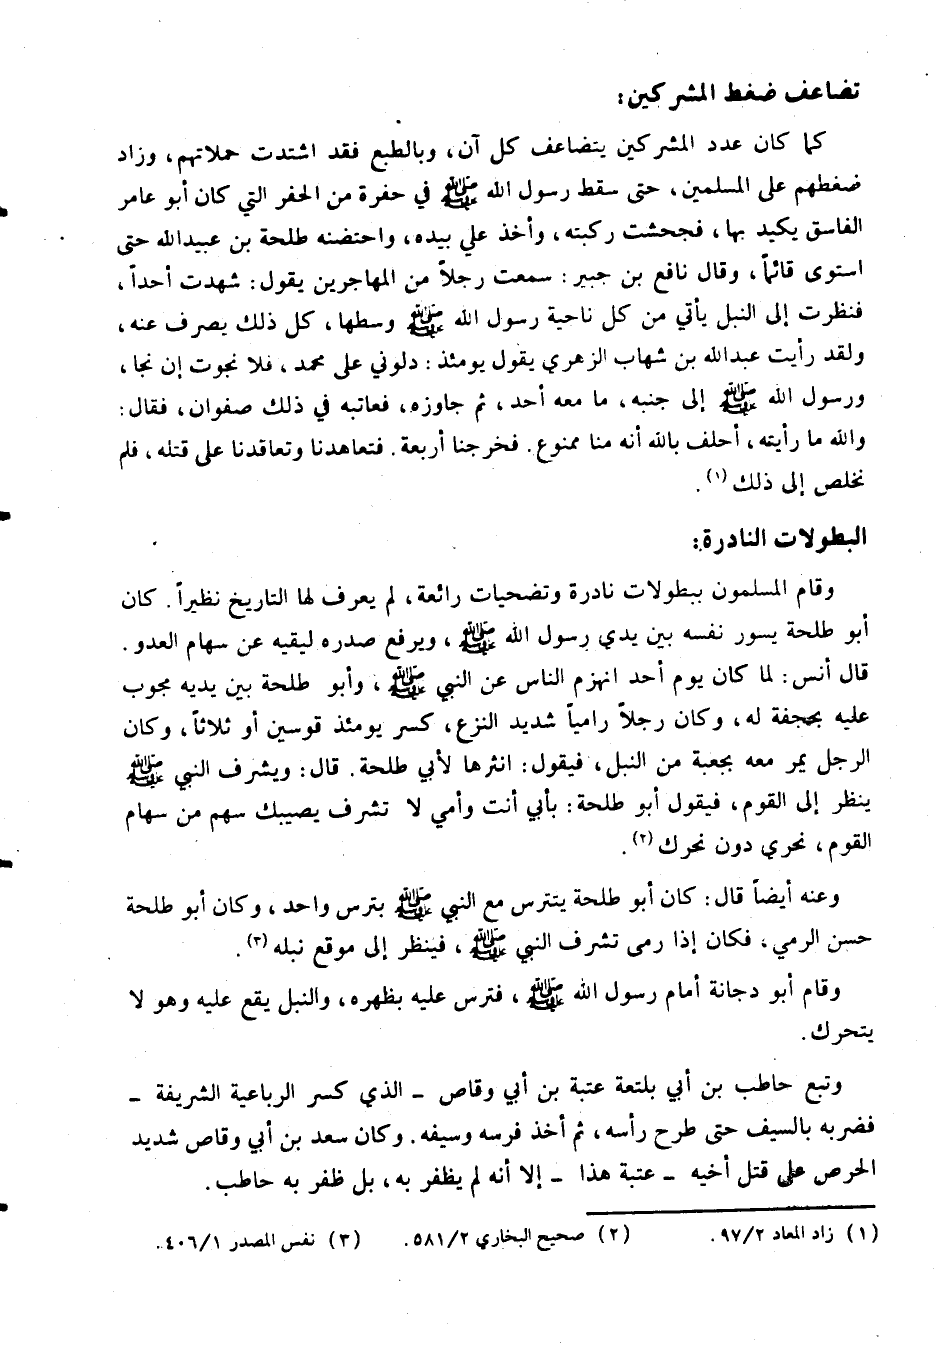 تضاعف ضغط المشركين:
كما كان عدد المشركين يتضاعف كل آن، وبالطبع فقد اشتدت حملاتهم، وزاد
ضغطهم على المسلمين، حتى سقط رسول الله ﷺ في حفرة من الحفر التي كان أبو عامر
الفاسق يكيد بها، فجحشت ركبته، وأخذ علي بيده، واحتضنه طلحة بن عبيدالله حتى
استوى قائماً، وقال نافع بن جبير: سمعت رجلاً من المهاجرين يقول: شهدت أحداً،
فنظرت إلى النبل يأتي من كل ناحية رسول الله ﷺ وسطها، كل ذلك يصرف عنه،
ولقد رأيت عبدالله بن شهاب الزهري يقول يومئذ: دلوني على محمد، فلا نجوت إن نجا،
ورسول الله ﷺ إلى جنبه، ما معه أحد، ثم جاوزه، فعاتبه في ذلك صفوان، فقال:
والله ما رأيته، أحلف بالله أنه منا ممنوع. فخرجنا أربعة. فتعاهدنا وتعاقدنا على قتله، فلم
نخلص إلى ذلك (١).
البطولات النادرة:
وقام المسلمون ببطولات نادرة وتضحيات رائعة، لم يعرف لها التاريخ نظيراً. كان
أبو طلحة يسور نفسه بين يدي رسول الله ﷺ، ويرفع صدره ليقيه عن سهام العدو.
قال أنس: لما كان يوم أحد انهزم الناس عن النبي ﷺ، وأبو طلحة بين يديه مجوب
عليه بحجفة له، وكان رجلاً رامياً شديد النزع، كسر يومئذ قوسين أو ثلاثاً، وكان
الرجل يمر معه بجعبة من النبل، فيقول: انثرها لأبي طلحة. قال: ويشرف النبي ﷺ
ينظر إلى القوم، فيقول أبو طلحة: بأبي أنت وأمي لا تشرف يصيبك سهم من سهام
القوم، نحري دون نحرك (٢).
وعنه أيضاً قال: كان أبو طلحة يتترس مع النبي ﷺ بترس واحد، وكان أبو طلحة
حسن الرمي، فكان إذا رمى تشرف النبي ﷺ، فينظر إلى موقع نبله (٣).
وقام أبو دجانة أمام رسول الله ﷺ، فترس عليه بظهره، والنبل يقع عليه وهو لا
يتحرك.
وتبع حاطب بن أبي بلتعة عتبة بن أبي وقاص - الذي كسر الرباعية الشريفة -
فضربه بالسيف حتى طرح رأسه، ثم أخذ فرسه وسيفه. وكان سعد بن أبي وقاص شديد
الحرص على قتل أخيه - عتبة هذا - إلا أنه لم يظفر به، بل ظفر به حاطب.
(١) زاد المعاد ٩٧/٢. (٢) صحيح البخاري ٥٨١/٢. (٣) نفس المصدر ٤٠٦/١.